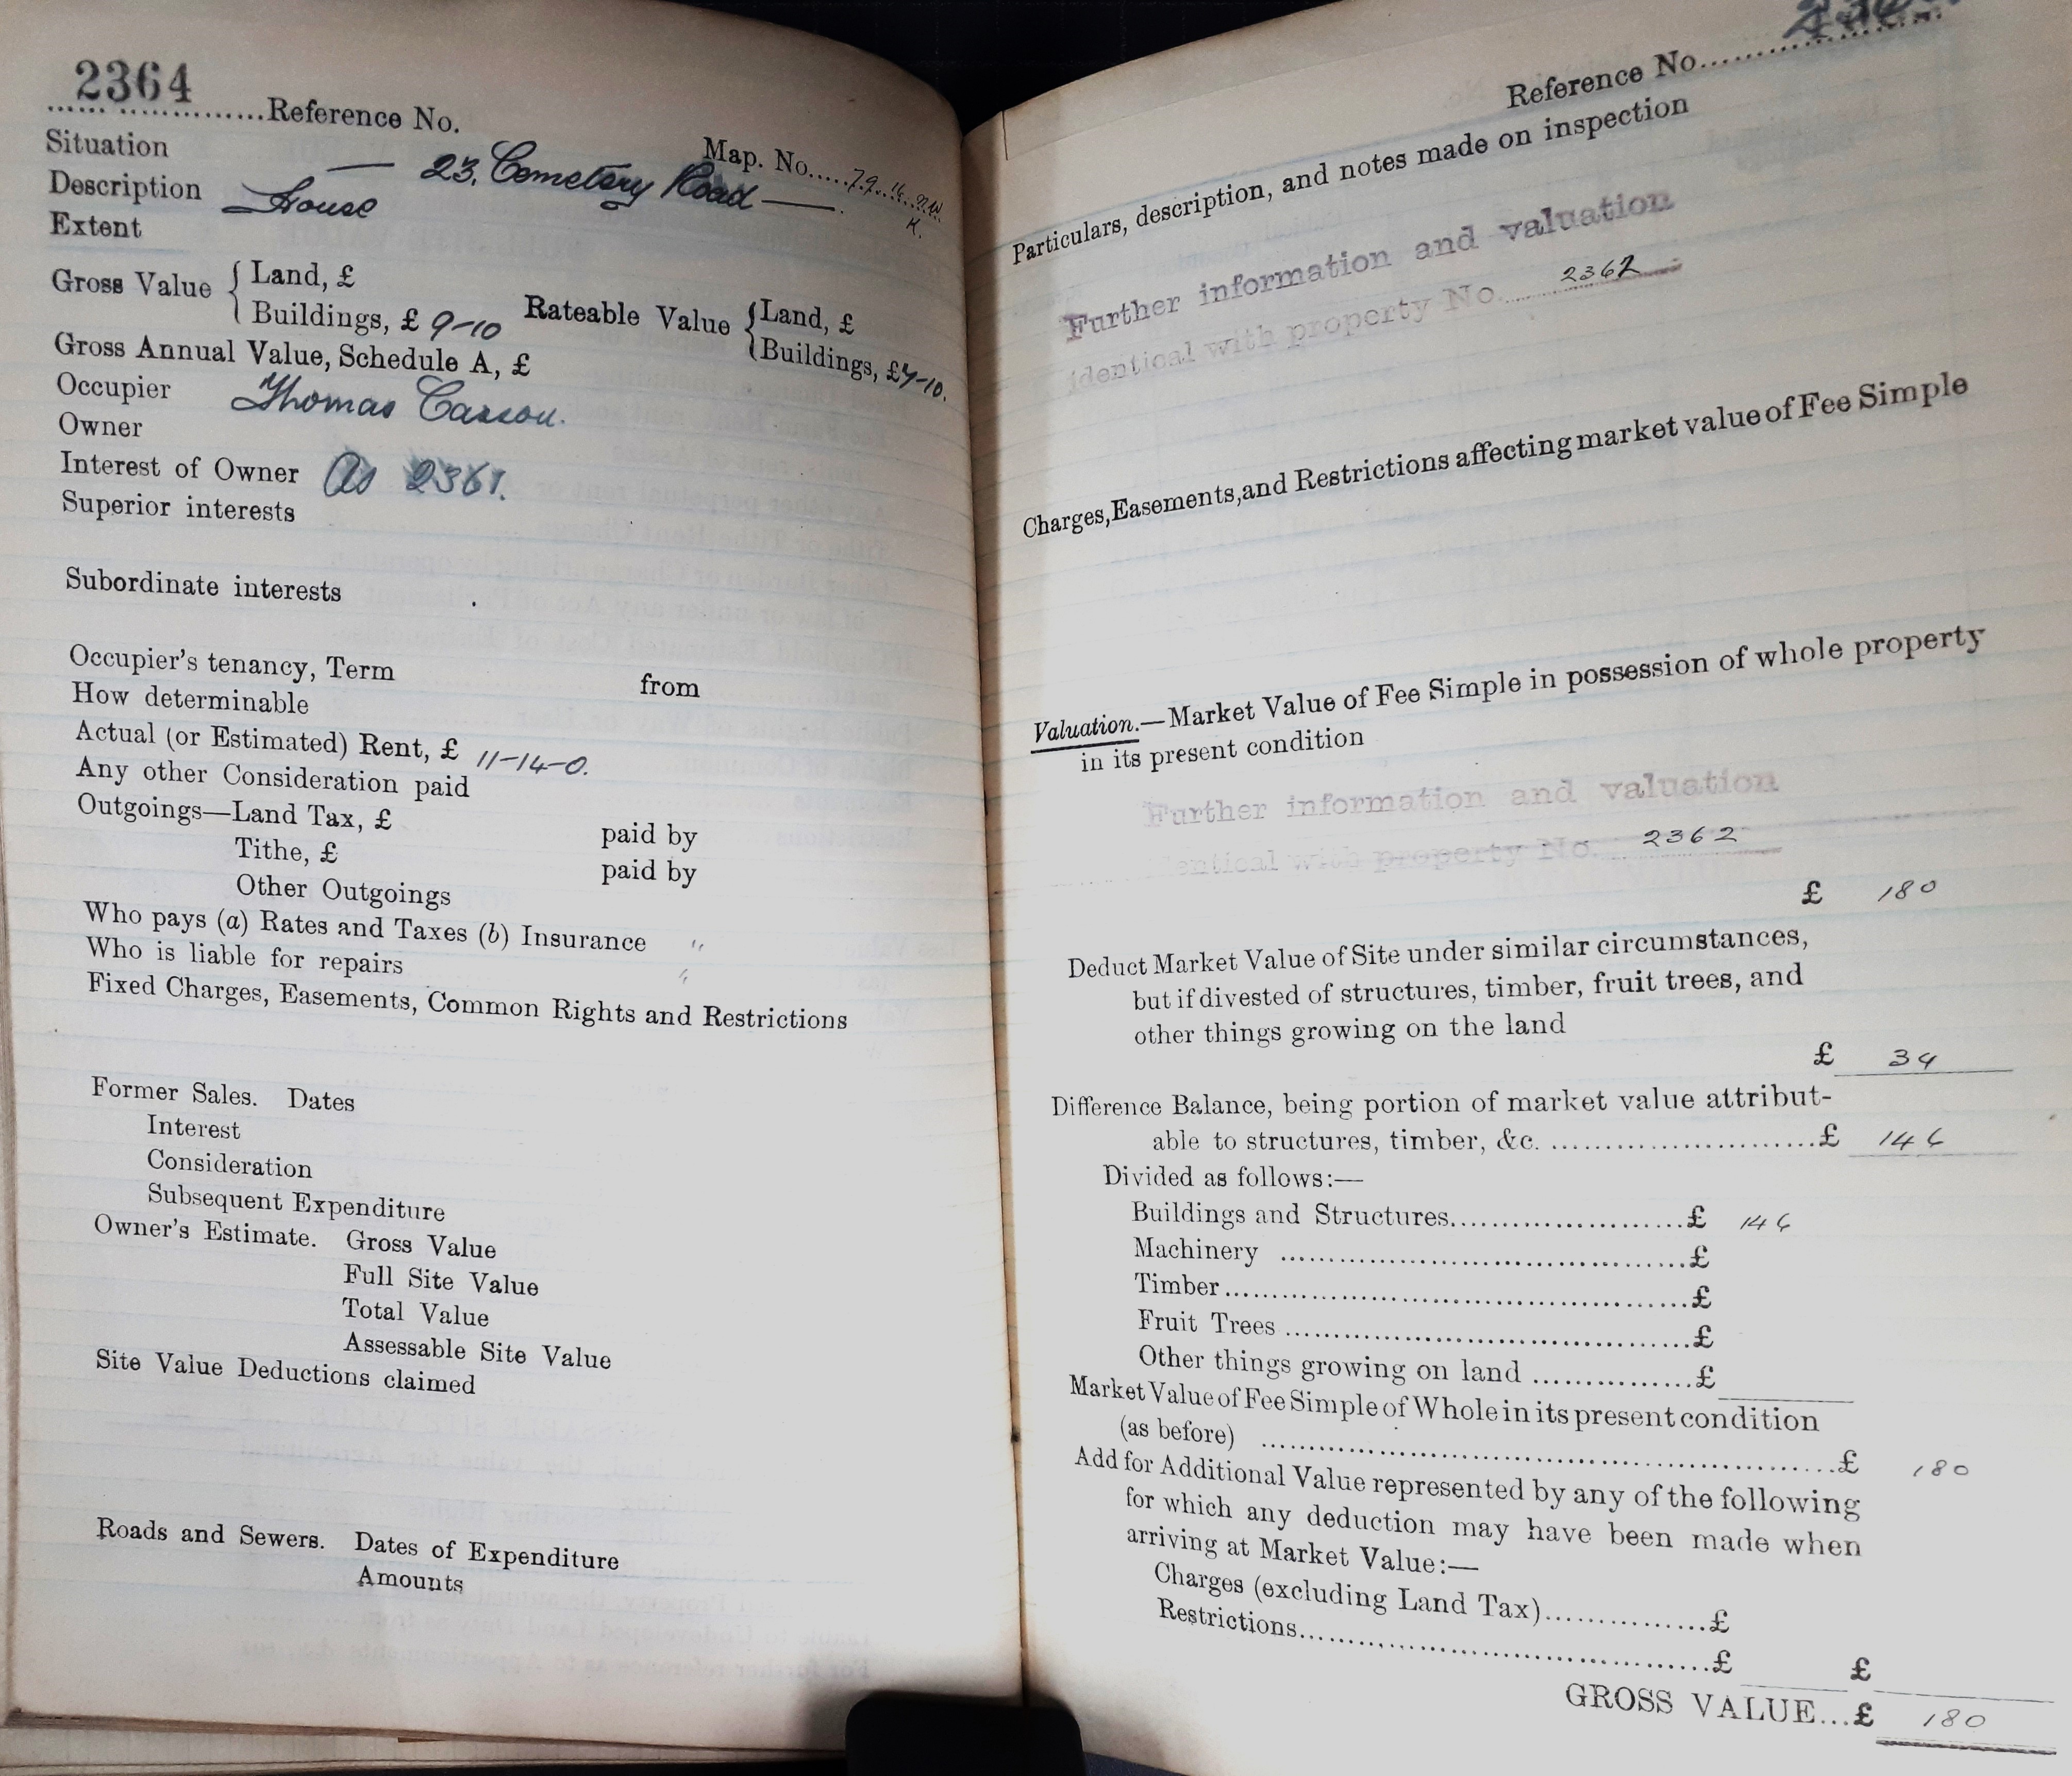 2364
Reference No.
Map. No. 79.14.NW
K.
Situation — 23, Cemetery Road —
Description House
Extent
Gross Value { Land, £
Buildings, £ 9-10
Rateable Value { Land, £
Buildings, £7-10.
Gross Annual Value, Schedule A, £
Occupier Thomas Casson.
Owner
Interest of Owner As 2361.
Superior interests
Subordinate interests
Occupier's tenancy, Term from
How determinable
Actual (or Estimated) Rent, £ 11-14-0.
Any other Consideration paid
Outgoings—Land Tax, £ paid by
Tithe, £ paid by
Other Outgoings
Who pays (a) Rates and Taxes (b) Insurance "
Who is liable for repairs "
Fixed Charges, Easements, Common Rights and Restrictions
Former Sales. Dates
Interest
Consideration
Subsequent Expenditure
Owner's Estimate. Gross Value
Full Site Value
Total Value
Assessable Site Value
Site Value Deductions claimed
Roads and Sewers. Dates of Expenditure
Amounts
Reference No.
Particulars, description, and notes made on inspection
Further information and valuation
identical with property No. 2362
Charges, Easements, and Restrictions affecting market value of Fee Simple
Valuation.—Market Value of Fee Simple in possession of whole property
in its present condition
Further information and valuation
entical with property No. 2362
£ 180
Deduct Market Value of Site under similar circumstances,
but if divested of structures, timber, fruit trees, and
other things growing on the land
£ 34
Difference Balance, being portion of market value attribut-
able to structures, timber, &c. ........................£ 146
Divided as follows:—
Buildings and Structures........................£ 146
Machinery ........................£
Timber........................£
Fruit Trees ........................£
Other things growing on land ...............£
Market Value of Fee Simple of Whole in its present condition
(as before) ........................£ 180
Add for Additional Value represented by any of the following
for which any deduction may have been made when
arriving at Market Value:—
Charges (excluding Land Tax)...............£
Restrictions........................£ £
GROSS VALUE...£ 180